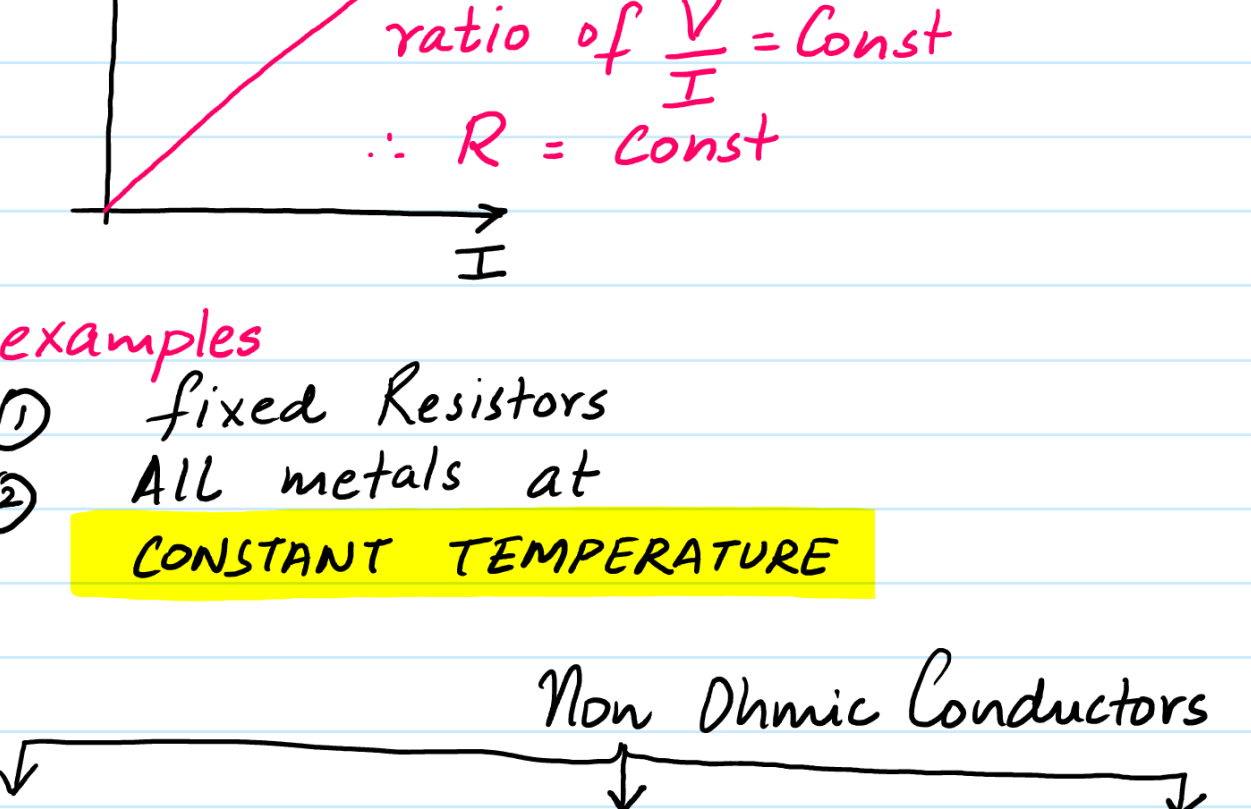 ratio of V/I = Const
∴ R = Const
I
examples
① fixed Resistors
② All metals at
CONSTANT TEMPERATURE
Non Ohmic Conductors